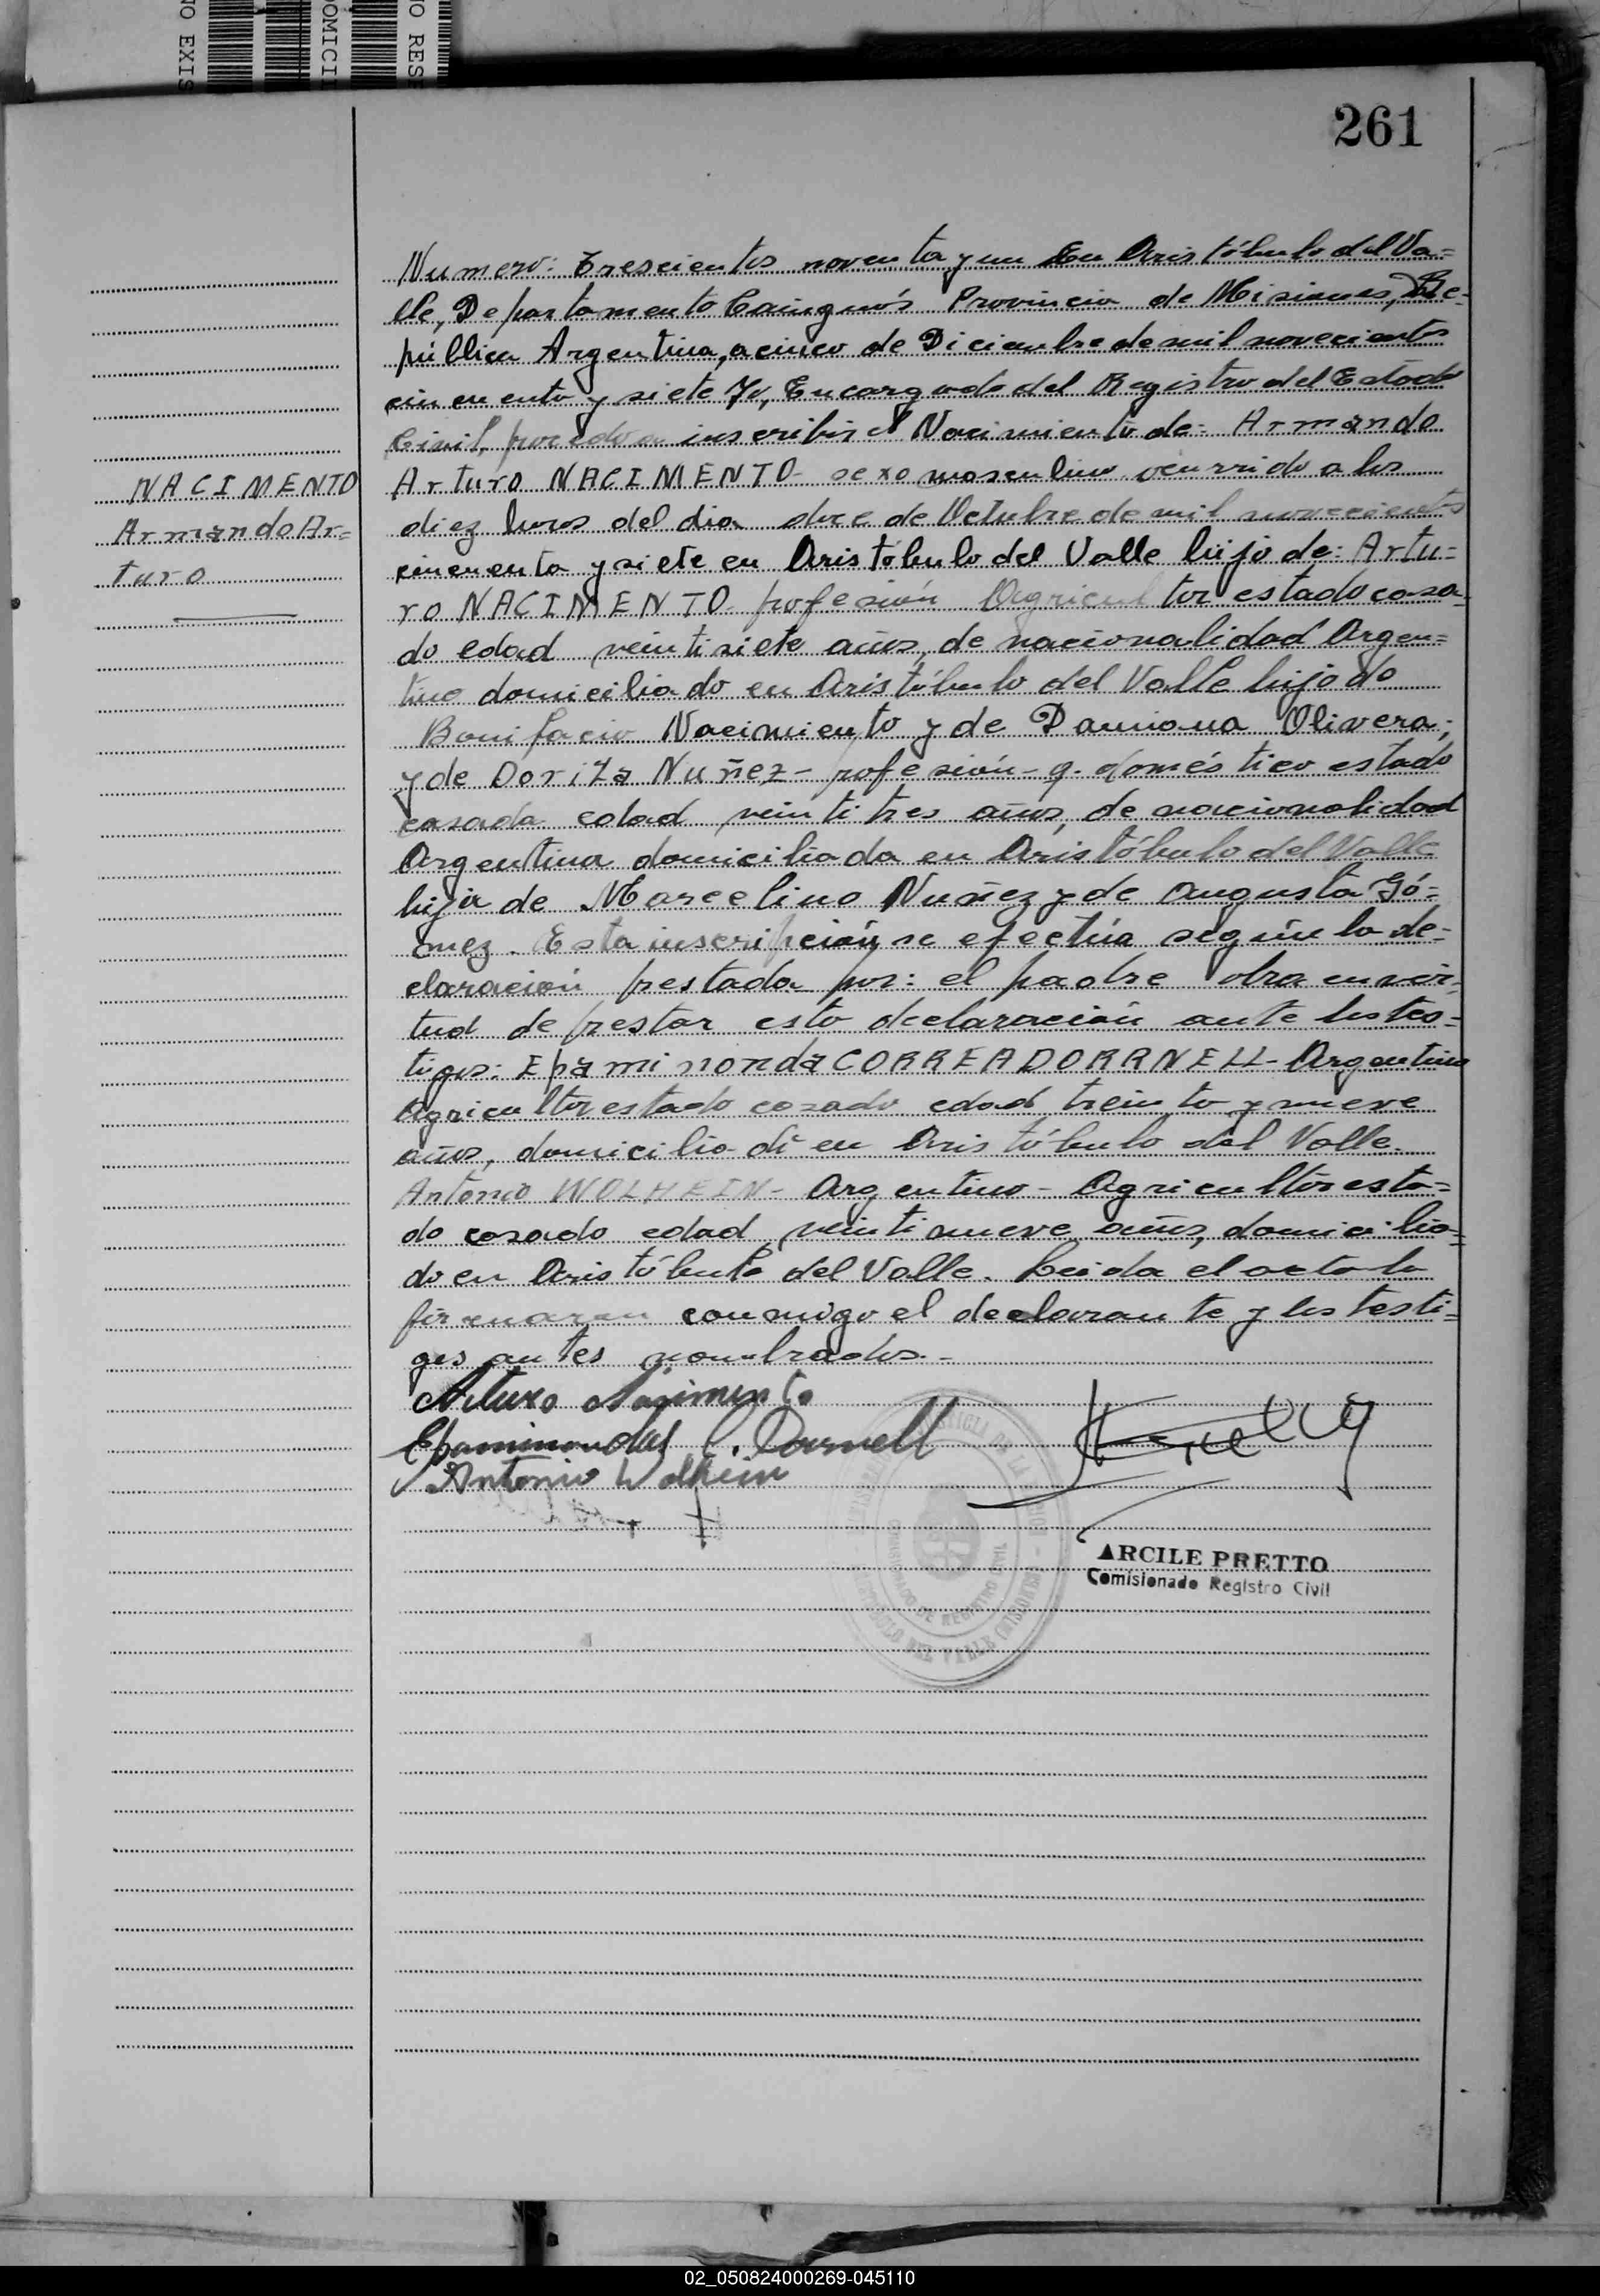 261
Numero: Trescientos noventa y un En Aristóbulo del Va=
lle, Departamento Cainguás Provincia de Misiones, Re=
pública Argentina, a cinco de Diciembre de mil novecientos
cincuenta y siete Yo, Encargado del Registro del Estado
Civil, procedo a inscribir el Nacimiento de: Armando
NACIMENTO
Arturo NACIMENTO sexo masculino ocurrido a las
Armando Ar=
diez horas del dia doce de Octubre de mil novecientos
turo
cincuenta y siete en Aristóbulo del Valle hijo de: Artu=
ro NACIMENTO profesión Agricultor estado casa-
do edad veintisiete años, de nacionalidad Argen=
tina domiciliado en Aristóbulo del Valle hijo de
Bonifacio Nacimiento y de Damiana Olivera;
y de Doriza Nuñez - profesión - q. doméstico estado
casada edad veintitres años, de nacionalidad
Argentina domiciliada en Aristóbulo del Valle
hija de Marcelino Nuñez y de Augusta Gó=
mez. Esta inscripción se efectúa según la de=
claración prestada por: el padre obra en vir-
tud de prestar esta declaración ante los tes=
tigos: Epaminonda CORREA DORRNELL - Argentino
Agricultor estado casado edad treinta y nueve
años, domicilia-dº en Aristóbulo del Valle.
Antonio WOLHEIN - Argentino - Agricultor esta=
do casado edad veintinueve años, domicilia=
do en Aristóbulo del Valle. Leida el acta la
firmaran conmigo el declarante y los testi=
gos antes nombrados.-
Arturo Nacimento
Epaminondas C. Dornell
Antonio Wolhein
ARCILE PRETTO
Comisionado Registro Civil
02_050824000269-045110